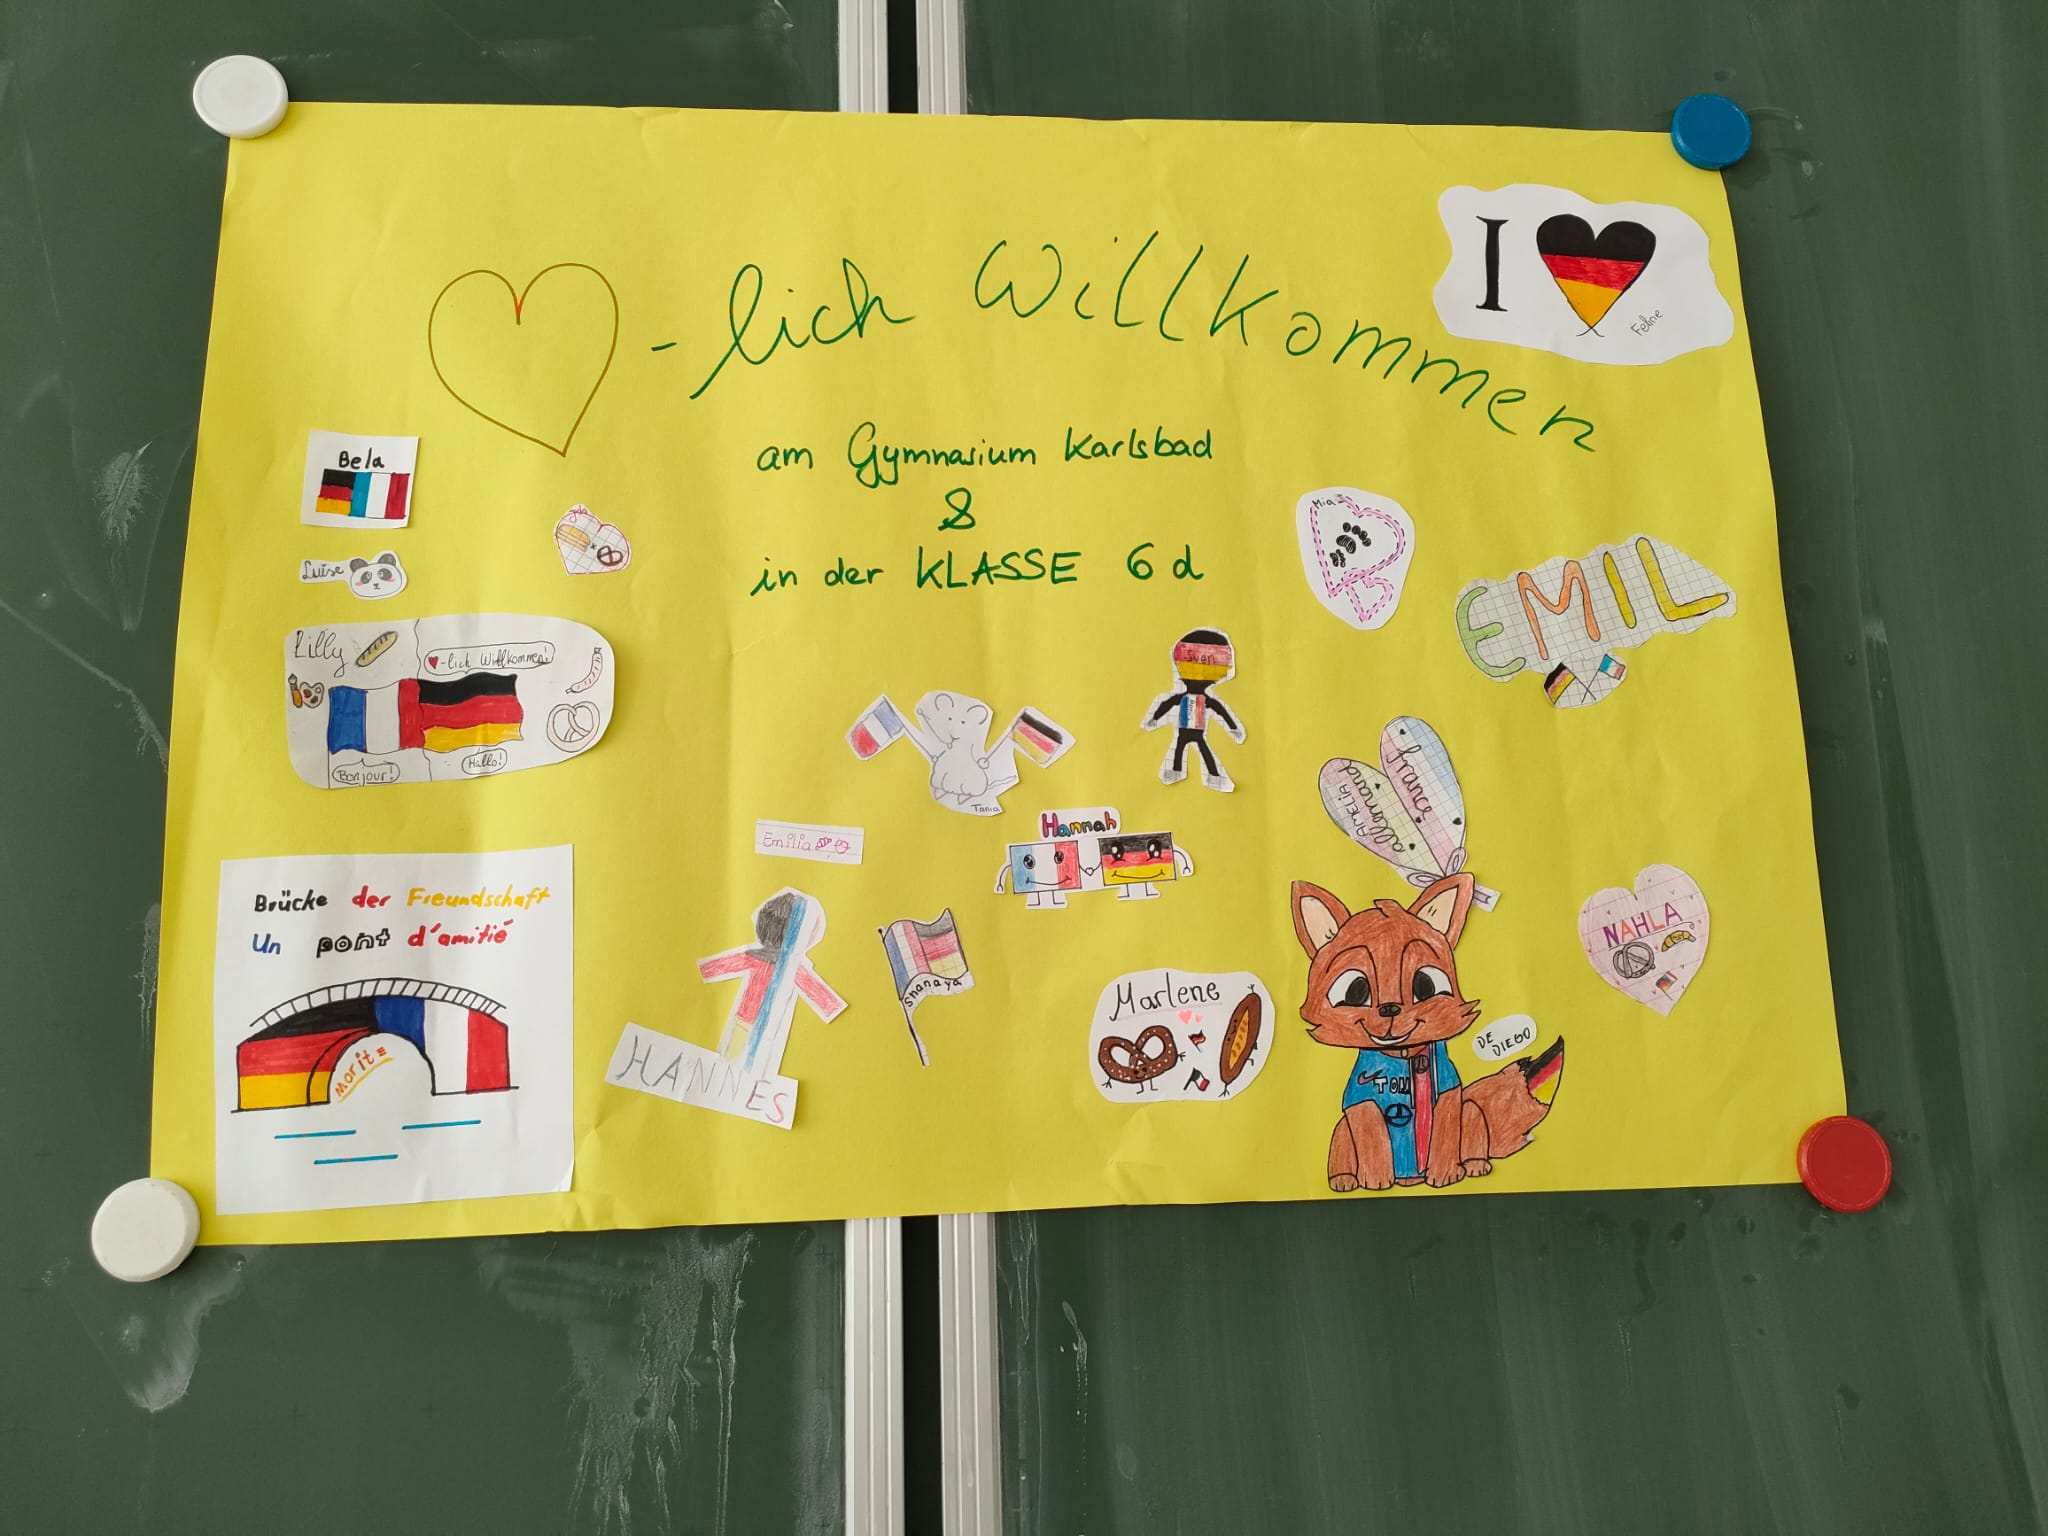 -lich Willkommen
am Gymnasium Karlsbad
&
in der KLASSE 6d
I
Feline
Bela
Luise
Jula
Lilly
-lich Willkommen!
Bonjour!
Hallo!
Brücke der Freundschaft
Un pont d'amitié
Moritz
Mia
EMIL
Sven
Tania
Hannah
Emilia
HANNES
Shanaya
Marlene
france
allemand
AMELIA
TOM
DE DIEGO
NAHLA